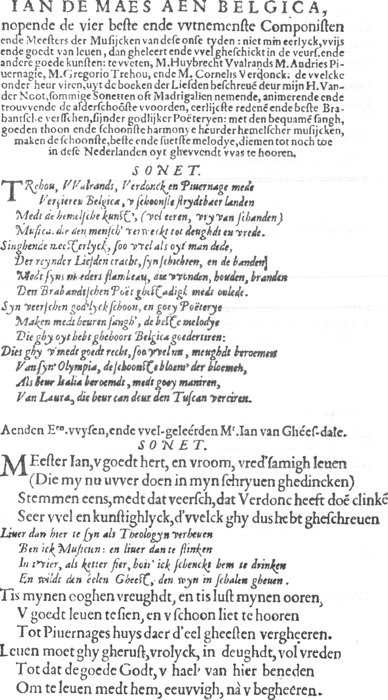 IAN DE MAES AEN BELGICA,
nopende de vier beste ende vvtnemenste Componisten
ende Meesters der Musijcken van dese onse tyden: niet min eerlyck, vvijs
ende goedt van leuen, dan gheleert ende vvel gheschickt in de veurs. ende
andere goede kunsten: te vveten, M. Huybrecht Vvalrands M. Andries Pi-
uernagie, M. Gregorio Trehou, ende M. Cornelis Verdonck: de vvelcke
onder heur viren, uyt de boeken der Liefden beschreuē deur mijn H. Van-
der Noot, sommige Sonetten oft Madrigalien nemende, animerende ende
trouvvende de alderschoōste vvoorden, eerlijcste redenē ende beste Bra-
bantsche versschen, sijnder godlijcker Poëteryen: met den bequamē sangh,
goeden thoon ende schoonste harmonye heurder hemelscher musijcken,
maken de schoonste, beste ende suetste melodye, diemen tot noch toe
in dese Nederlanden oyt ghevvendt vvas te hooren.
SONET.
TRehou, VValrands, Verdonck en Piuernage mede
Vercieren Belgica, v schoonste strydtbaer landen
Medt de hemelsche kunst, (vol eeren, vry van schanden)
Musica, die den mensch' verwerkt tot deughdt en vrede.
Singhende meesterlyck, soo vvel als oyt man dede,
Der reynder Liefden cracht, syn schichten, en de banden
Modt syns moeders flambeau, die vvonden, houden, branden
Den Brabandtschen Poët ghestadigh medt onlede.
Syn veerschen godlyck schoon, en goey Poëterye
Maken medt heuren sangh', de beste melodye
Die ghy oyt hebt ghehoort Belgica goedertiren:
Dies ghy v medt goedt recht, soo vvel nu, meughdt beroemen
Van syn' Olympia, de schoonste bloem' der bloemen,
Als heur Italia beroemdt, medt goey maniren,
Van Laura, die heur can deur den Tuscan verciren.
Aenden Een. vvysen, ende vvel-geleerden Mr. Ian van Ghées-dale.
SONET.
MEester Ian, v goedt hert, en vroom, vred'samigh leuen
(Die my nu uvver doen in myn schryuen ghedincken)
Stemmen eens, medt dat veersch, dat Verdonc heeft doē clinkē
Seer vvel en kunstighlyck, d'vvelck ghy dus hebt gheschreuen
Liuer dan hier te syn als Theologyn verheuen
Ben ick Musicien: en liuer dan te stincken
In t'vier, als ketter fier, hoir' ick schencke hem te drincken
En wildt den eelen Gheest, den wyn in schalen gheuen.
Tis mynen ooghen vreughdt, en tis lust mynen ooren,
V goedt leuen te sien, en v schoon liet te hooren
Tot Piuernages huys daer d'eel gheesten vergheeren.
Leuen moet ghy gherust, vrolyck, in deughdt, vol vreden
Tot dat de goede Godt, v hael' van hier beneden
Om te leuen medt hem, eeuvvigh, nà v begheeren.